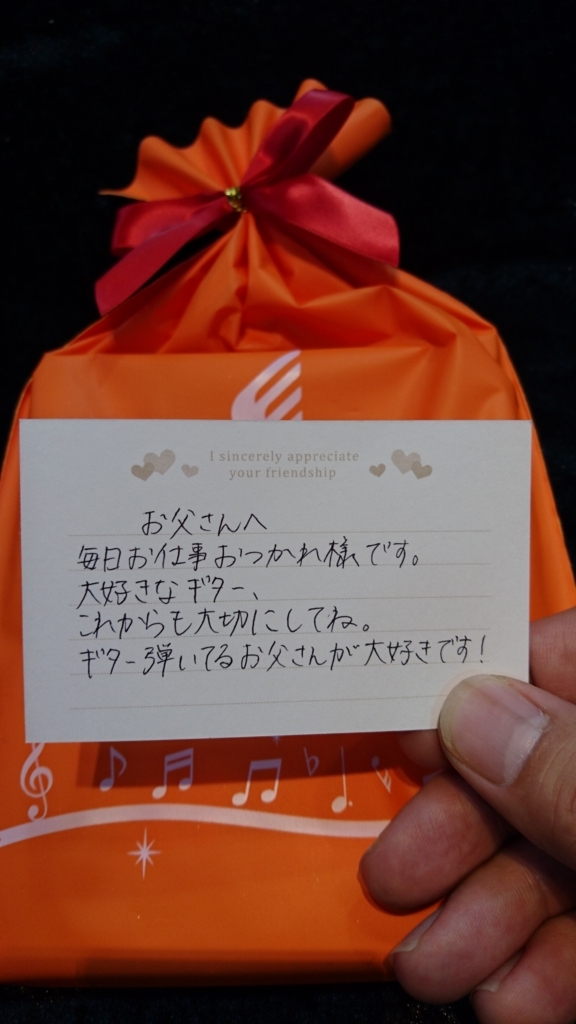 I sincerely appreciate
your friendship
お父さんへ
毎日お仕事おつかれ様です。
大好きなギター、
これからも大切にしてね。
ギター弾いてるお父さんが大好きです!